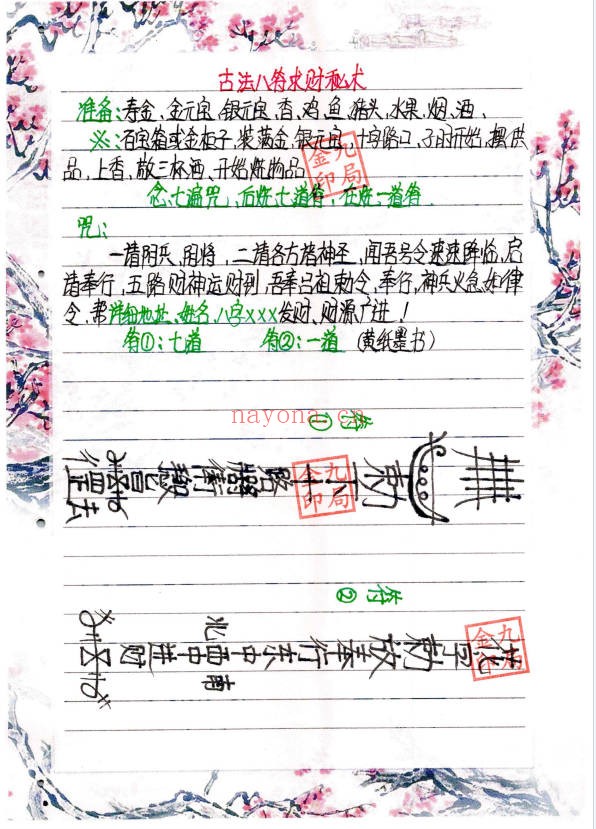 古法八符求财秘术
准备:寿金、金元宝、银元宝、香、鸡、鱼、猪头、水果、烟、酒、
※:百宝箱或金柜子,装满金、银元宝,十字路口、子时开始,摆供
品,上香、敬三杯酒、开始烧物品
念、七遍咒、后烧七道符、在烧一道符
咒:
一请阴兵、阴将,二请各方诸神圣,闻吾号令速速降临,启
请奉行,五路财神运财到,吾奉吕祖勅令,奉行,神兵火急如律
令,帮详细地址、姓名、八字×××发财、财源广进!
符①:七道 符②:一道 (黄纸墨书)
nayona.cn
符①
九局金印
符②
北
勅放奉行东中西中进财
南
九局金印